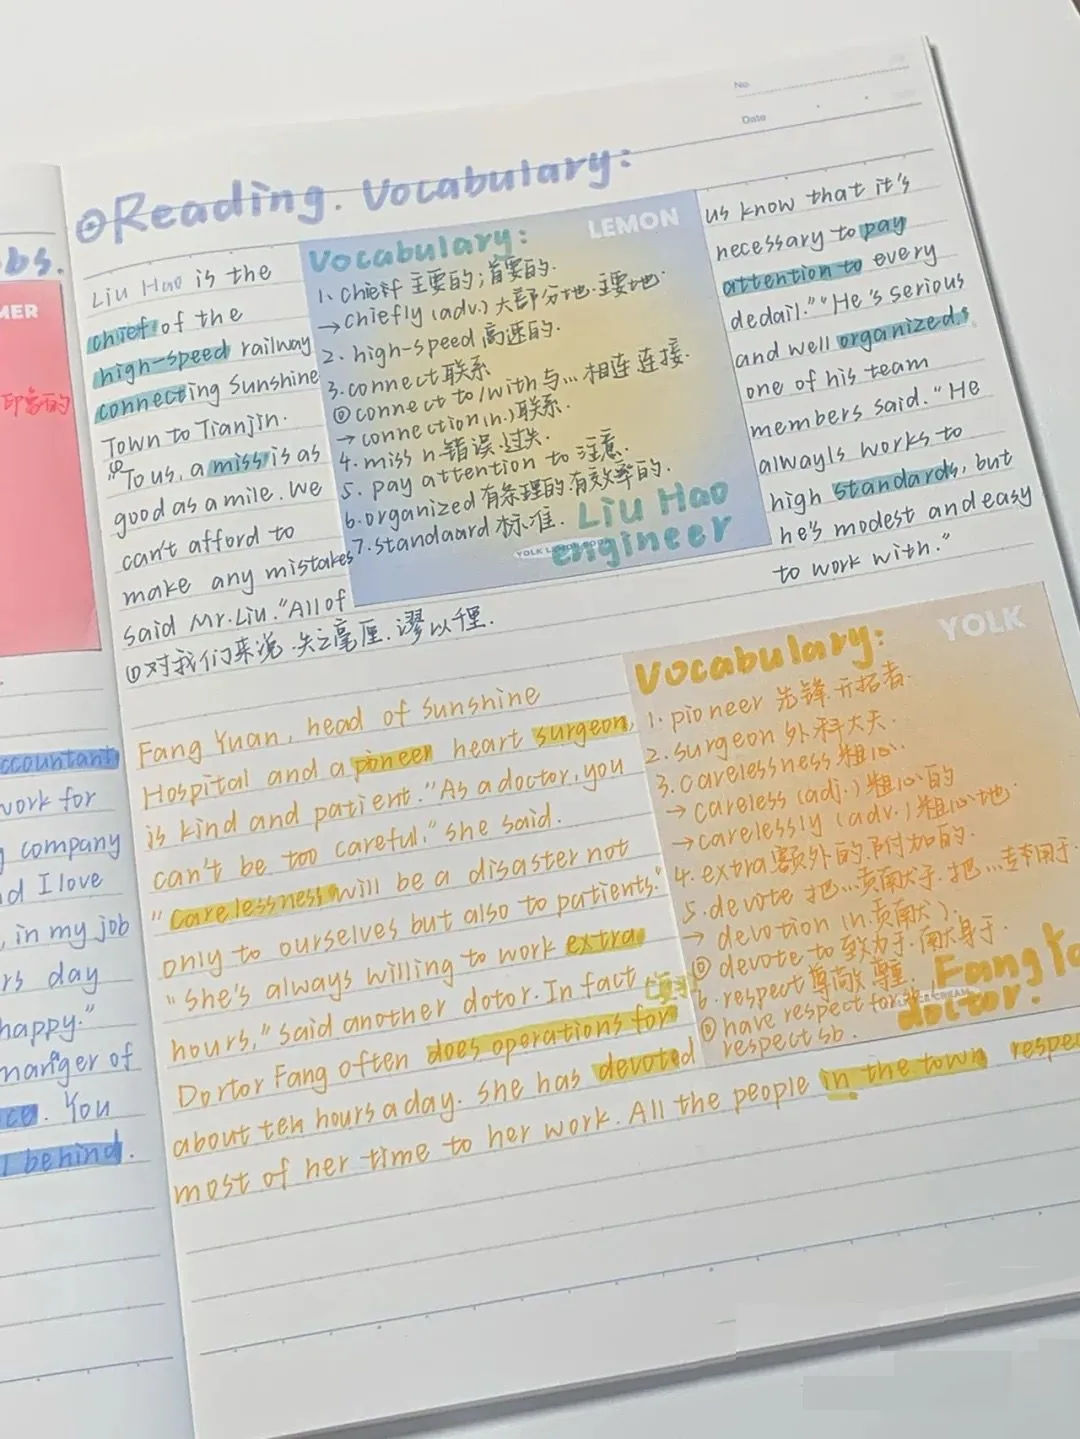 No.
Date
Reading. Vocabulary:
Liu Hao is the
chief of the
high-speed railway
connecting Sunshine
Town to Tianjin.
"To us, a miss is as
good as a mile. We
can't afford to
make any mistakes
said Mr. Liu. "All of
①对我们来说,失之毫厘,谬以千里.
LEMON
Vocabulary:
1. chief 主要的;首要的.
→chiefly (adv.) 大部分地.主要地
2. high-speed 高速的.
3. connect 联系
◎connect to/with 与...相连 连接
→ connection (n.) 联系.
4. miss n. 错误.过失.
5. pay attention to 注意.
6. organized 有条理的.有效率的.
7. standaard 标准.
YOLK
Liu Hao
engineer
us know that it's
necessary to pay
attention to every
dedail." "He's serious
and well organized,
one of his team
members said. "He
always works to
high standards, but
he's modest and easy
to work with."
Fang Yuan, head of Sunshine
Hospital and a pioneer heart surgeon,
is kind and patient. "As a doctor, you
can't be too careful," she said.
"Carelessness will be a disaster not
only to ourselves but also to patients."
"She's always willing to work extra
hours," said another dotor. In fact
Dortor Fang often does operations for
about ten hours a day. She has devoted
most of her time to her work. All the people in the town respe
YOLK
Vocabulary:
1. pioneer 先锋.开拓者.
2. surgeon 外科大夫.
3. carelessness 粗心.
→ careless (adj.) 粗心的
→carelessly (adv.) 粗心地.
4. extra 额外的.附加的.
5. devote 把...贡献于.把...专用于.
→ devotion (n.贡献).
◎ devote to 致力于.献身于.
6. respect 尊敬 尊重.
◎ have respect for
respect sb.
ICE CREAM
Fang
doctor.
MER
印象的
obs.
ccountant
work for
company
d I love
, in my job
rs day
happy."
manager of
ce. You
behind.